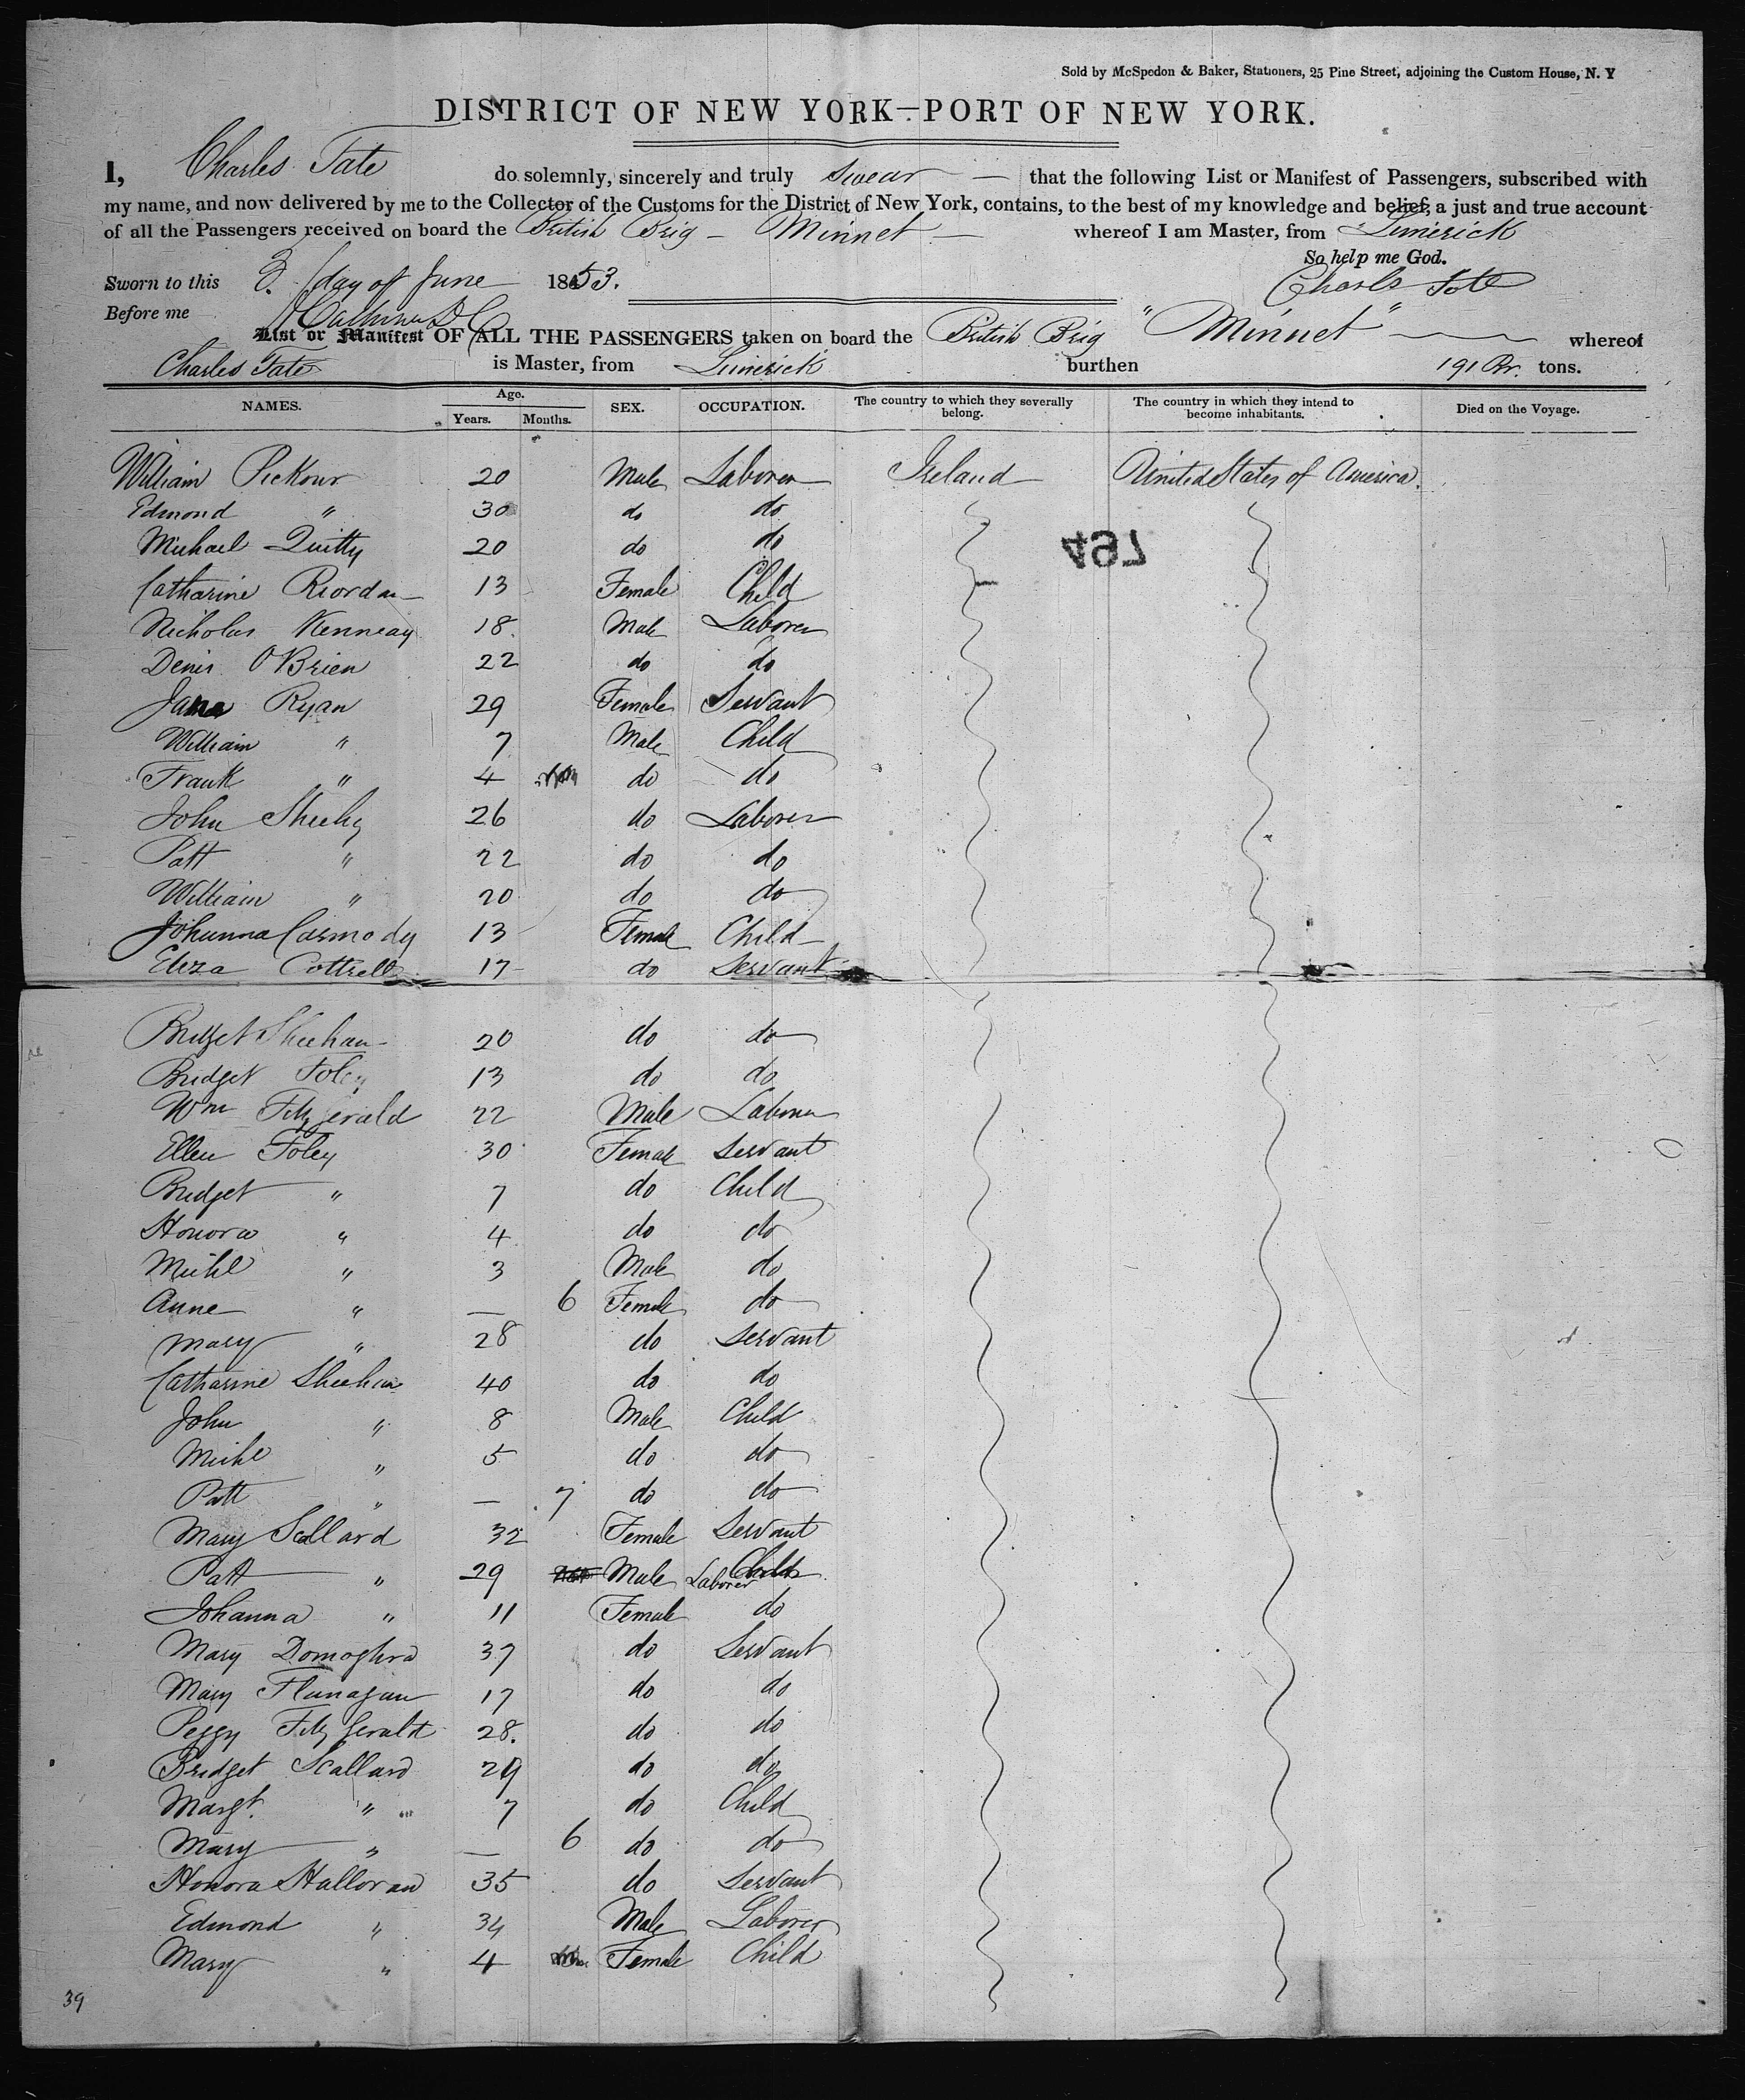 Sold by McSpedon & Baker, Stationers, 25 Pine Street, adjoining the Custom House, N. Y
DISTRICT OF NEW YORK—PORT OF NEW YORK.
I, Charles Tate do solemnly, sincerely and truly swear — that the following List or Manifest of Passengers, subscribed with
my name, and now delivered by me to the Collector of the Customs for the District of New York, contains, to the best of my knowledge and belief, a just and true account
of all the Passengers received on board the British Brig — Minnet — whereof I am Master, from Limerick
So help me God.
Sworn to this 3. day of June 1853. Charls Tate
Before me
List or Manifest OF ALL THE PASSENGERS taken on board the British Brig "Minnet" whereof
Charles Tate is Master, from Limerick burthen 191 tons.
NAMES. Age. Years. Months. SEX. OCCUPATION. The country to which they severally belong. The country in which they intend to become inhabitants. Died on the Voyage.
William 20 Male Laborer Ireland United States of America.
Edmond " 30 do do
497
Michael Quitty 20 do do
Catharine Riordan 13 Female Child
Nicholas Kenneay 18. Male Laborer
Denis O'Brien 22 do do
Jane Ryan 29 Female Servant
William " 7 Male Child
Frank " 4 do do
John Sheehy 26 do Laborer
Patt " 22 do do
William " 20 do do
Johanna Carmody 13 Female Child
Eliza Cottrell 17 do Servant
Bridget Sheehan 20 do do
Bridget Foley 13 do do
Wm Fitzgerald 22 Male Laborer
Ellen Foley 30 Female Servant
Bridget " 7 do Child
Honora " 4 do do
Michl " 3 Male do
Anne " — 6 Female do
Mary " 28 do Servant
Catharine Sheehan 40 do do
John " 8 Male Child
Michl " 5 do do
Patt " — 7 do do
Mary Scallard 32 Female Servant
Patt " 29 Male Laborer Child
Johanna " 11 Female do
Mary Donoghra 37 do Servant
Mary Flanagan 17 do do
Peggy FitzGerald 28. do do
Bridget Scallard 29 do do
Margt. " 7 do Child
Mary " — 6 do do
Honora Halloran 35 do Servant
Edmond " 34 Male Laborer
Mary " 4 Female Child
39